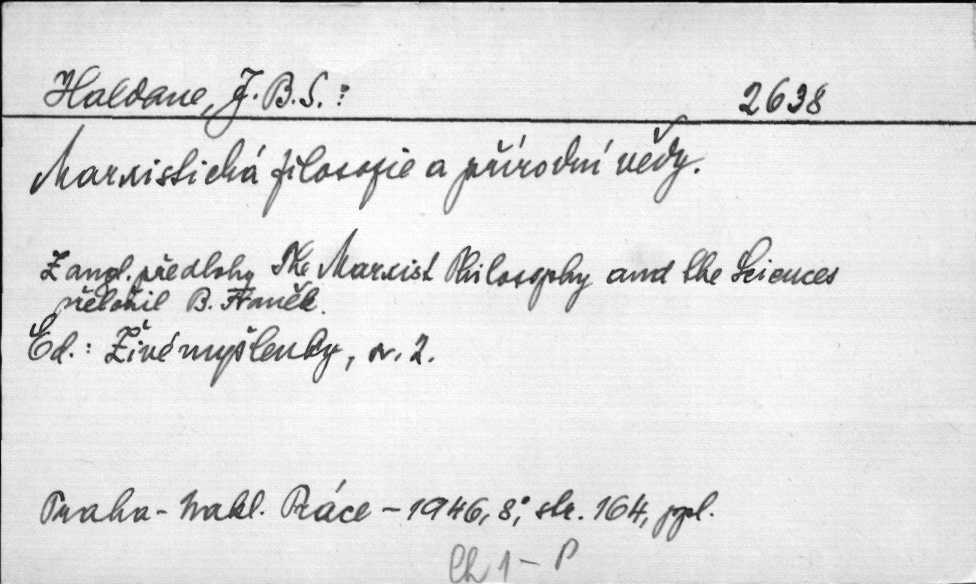 Haldane, J. B. S. : 2638
Marxistická filosofie a přírodní vědy.
Z angl. předlohy The Marxist Philosophy and the Sciences
přeložil B. Franěk.
Ed.: Živé myšlenky, sv. 2.
Praha - Nakl. Práce - 1946, 8°, str. 164, ppl.
Ch 1 - P